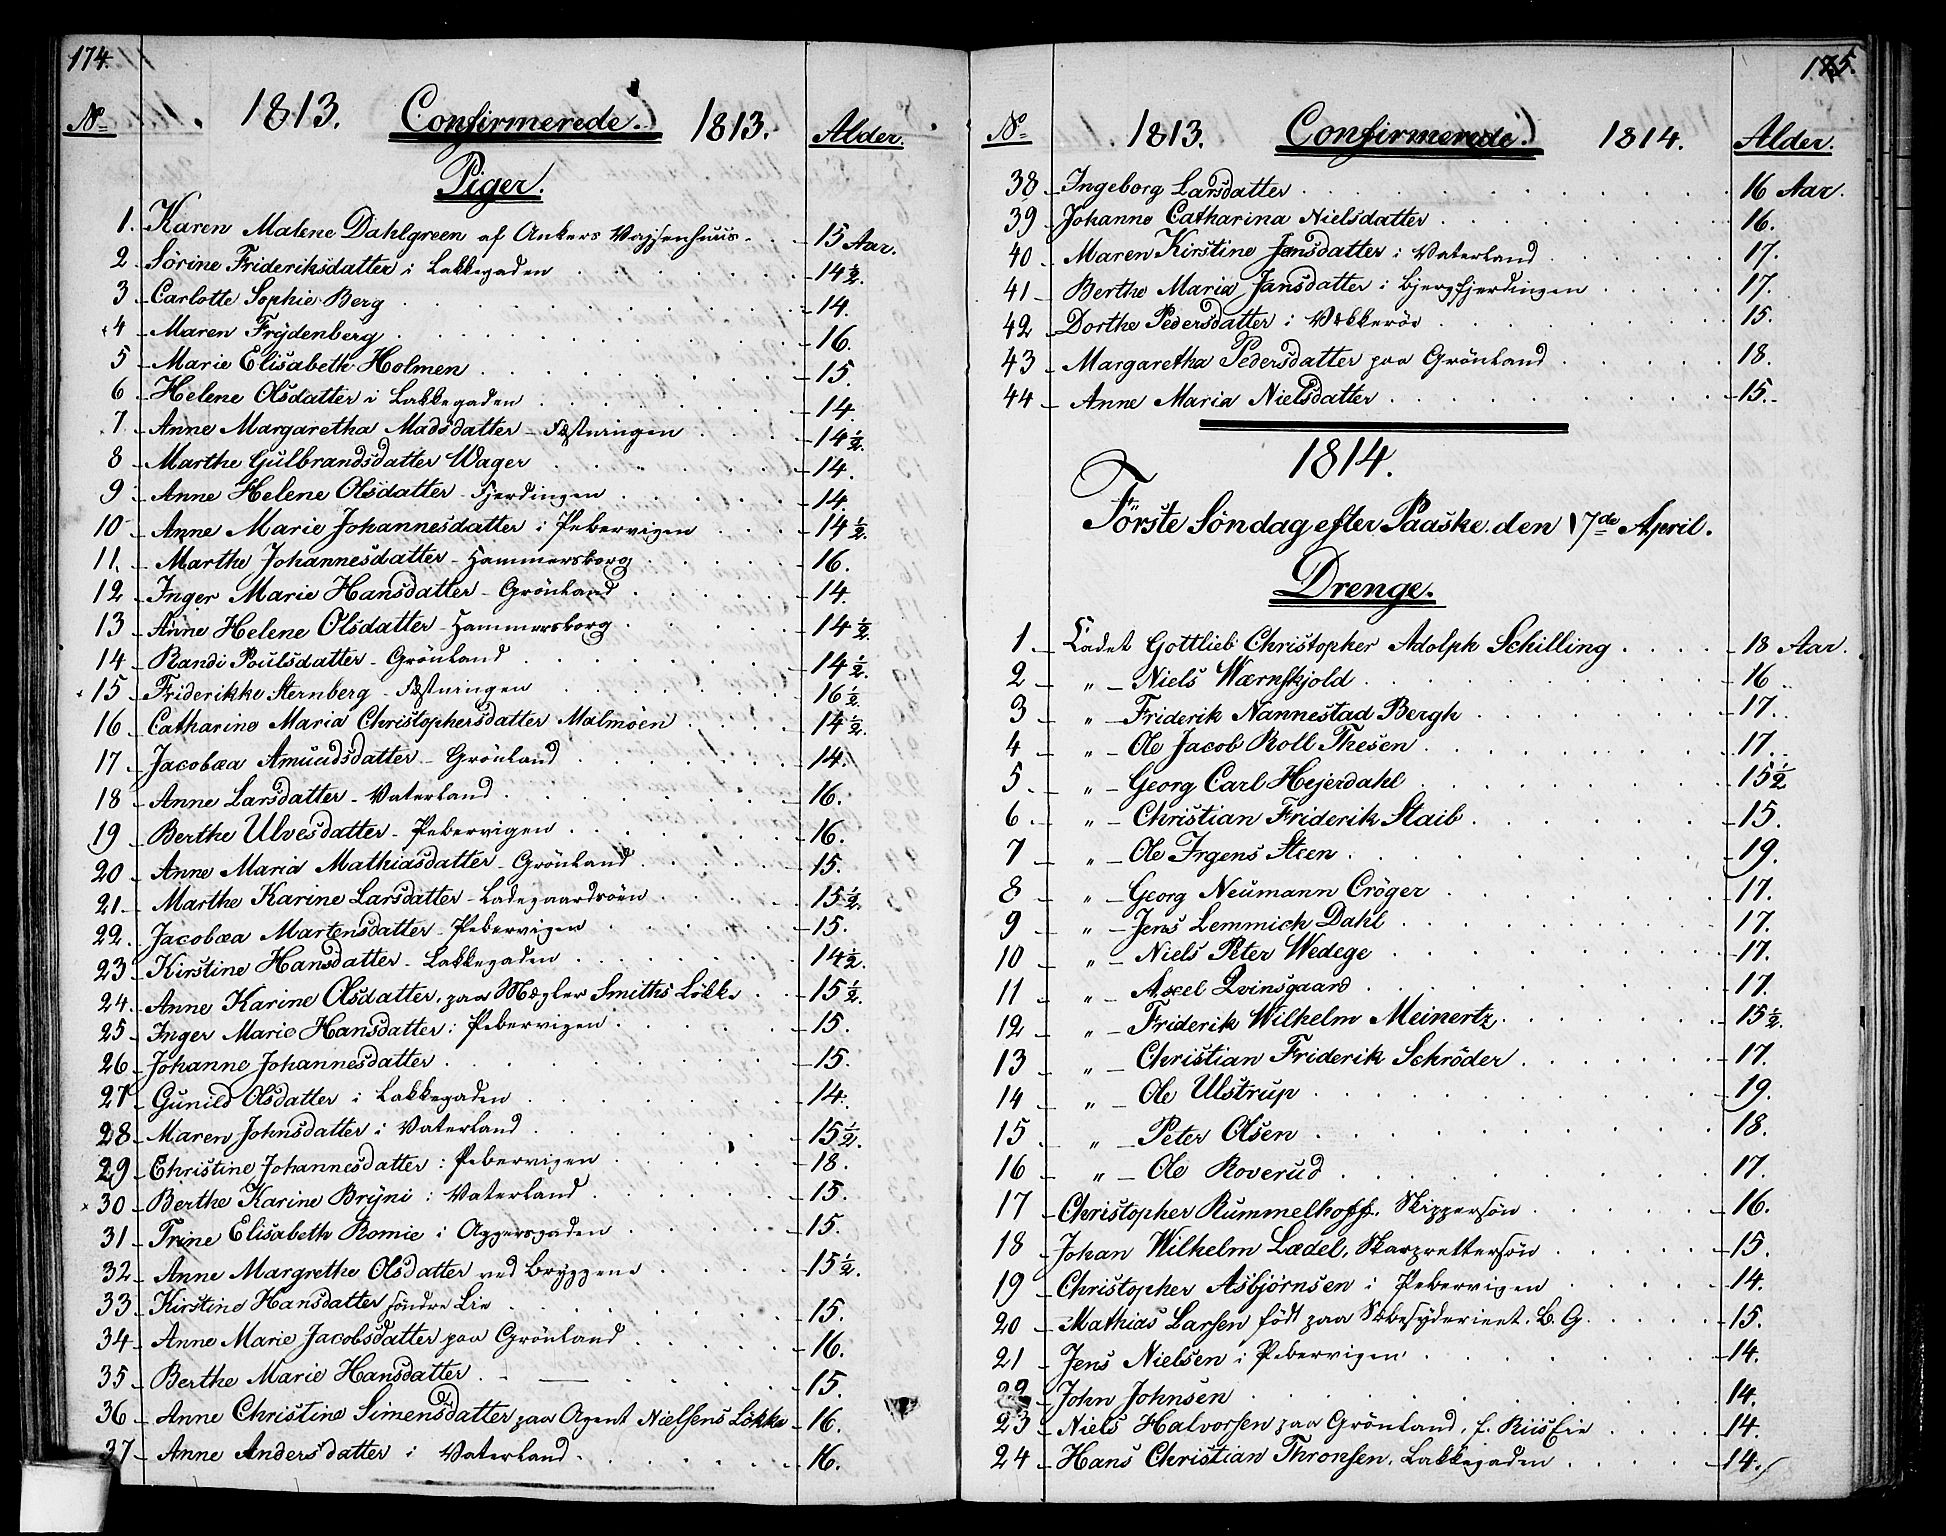 174.
No 1813. Confirmerede. 1813. Alder.
Piger.
1. Karen Malene Dahlgreen af Ankers Vajsenhuus 15 Aar.
2 Sörine Frideriksdatter i Lakkegaden 14 1/2.
3 Carlotte Sophie Berg 14.
4 Maren Frydenberg 16.
5 Marie Elisabeth Holmen 15.
6 Helene Olsdatter i Lakkegaden 14
7 Anne Margaretha Madsdatter - Fæstningen 14 1/2.
8 Marthe Gulbrandsdatter Wager 14.
9 Anne Helene Olsdatter - Fjerdingen 14.
10 Anne Marie Johannesdatter i Pebervigen 14 1/2.
11. Marthe Johannesdatter - Hammersborg 16.
12 Inger Marie Hansdatter - Grönland 14.
13 Anne Helene Olsdatter - Hammersborg 14 1/2.
14 Randi Poulsdatter - Grönland 14 1/2.
15 Friderikke Sternberg - Fæstningen 16 1/2.
16 Catharine Maria Christophersdatter Malmöen 14 1/2.
17 Jacobæa Amundsdatter - Grönland 14.
18 Anne Larsdatter - Vaterland 16.
19 Berthe Ulvesdatter - Pebervigen 16.
20 Anne Maria Mathiasdatter - Grönland 15.
21 Marthe Karine Larsdatter - Ladegaardsöen 15 1/2.
22. Jacobæa Martensdatter - Pebervigen 15.
23 Kirstine Hansdatter - Lakkegaden 14 1/2.
24. Anne Karine Olsdatter, paa Mægler Smiths Lökke 15 1/2.
25 Inger Marie Hansdatter i Pebervigen 15.
26 Johanne Johannesdatter 15.
27 Gunild Olsdatter i Lakkegaden 14.
28 Maren Johnsdatter i Vaterland 15 1/2.
29 Christine Johannesdatter i Pebervigen 18.
30 Berthe Karine Bryni i Vaterland 15.
31 Trine Elisabeth Romie i Aggersgaden 15.
32 Anne Margrethe Olsdatter ved Bryggen 15 1/2.
33 Kirstine Hansdatter söndre Lie 15.
34 Anne Marie Jacobsdatter paa Grönland 16.
35 Berthe Marie Hansdatter 15.
36 Anne Christine Simensdatter paa Agent Nielsens Lökke 16.
37 Anne Andersdatter i Vaterland 16.
175.
No 1813. Confirmerede. 1814. Alder.
38 Ingeborg Larsdatter 16 Aar.
39 Johanne Catharina Nielsdatter 16.
40 Maren Kirstine Jansdatter i Vaterland 17.
41 Berthe Maria Jansdatter i Bjergfjerdingen 17.
42 Dorthe Pedersdatter i Vækkeröe 15.
43 Margaretha Pedersdatter paa Grönland 18.
44 Anne Maria Nielsdatter 15.
1814.
Förste Söndag efter Paaske den 17de April.
Drenge.
1 Cadet Gottlieb Christopher Adolph Schilling 18 Aar.
2 " - Niels Wærnskjold 16
3 " - Friderik Nannestad Bergh 17.
4 " - Ole Jacob Roll Thesen 17.
5 " - Georg Carl Hejerdahl 15 1/2
6 " - Christian Friderik Staib 15.
7 " - Ole Irgens Steen 19.
8 " - Georg Neumann Cröger 17.
9 " - Jens Lemmich Dahl 17.
10 " - Niels Peter Wedege 17.
11 " - Axel Qvinsgaard 17.
12 " - Friderik Wilhelm Meinertz 15 1/2.
13 " - Christian Friderik Schröder 17.
14 " - Ole Ulstrup 19.
15 " - Peter Olsen 18.
16 " - Ole Roverud 17.
17 Christopher Rummelhoff, Skippersön 16.
18 Johan Wilhelm Lædel, Skarprettersön 15.
19 Christopher Asbjörnsen i Pebervigen 14.
20 Mathias Larsen födt paa B. G. 15.
21 Jens Nielsen i Pebervigen 14.
22 John Johnsen 14.
23 Niels Halvorsen paa Grönland, f. Riis Eie 14.
24 Hans Christian Thronsen, Lakkegaden 14.